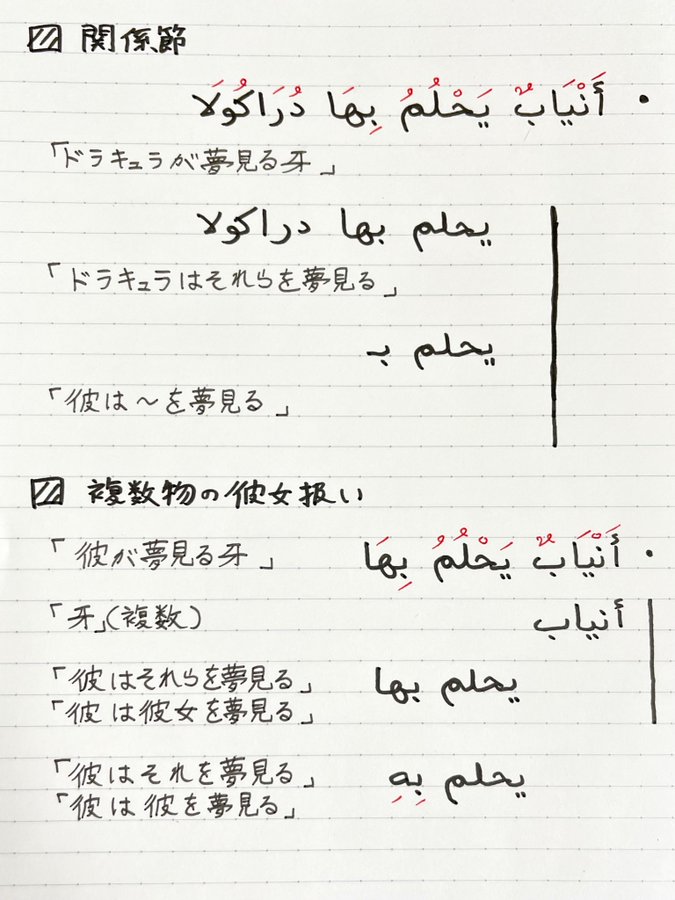 ▨ 関係節
• أَنْيَابٌ يَحْلُمُ بِهَا دُرَاكُولَا
「ドラキュラが夢見る牙」
يحلم بها دراكولا
「ドラキュラはそれらを夢見る」
يحلم بـ
「彼は〜を夢見る」
▨ 複数物の彼女扱い
• أَنْيَابٌ يَحْلُمُ بِهَا 「彼が夢見る牙」
أنياب 「牙」(複数)
يحلم بها 「彼はそれらを夢見る」
「彼は彼女を夢見る」
يحلم بِهِ 「彼はそれを夢見る」
「彼は彼を夢見る」